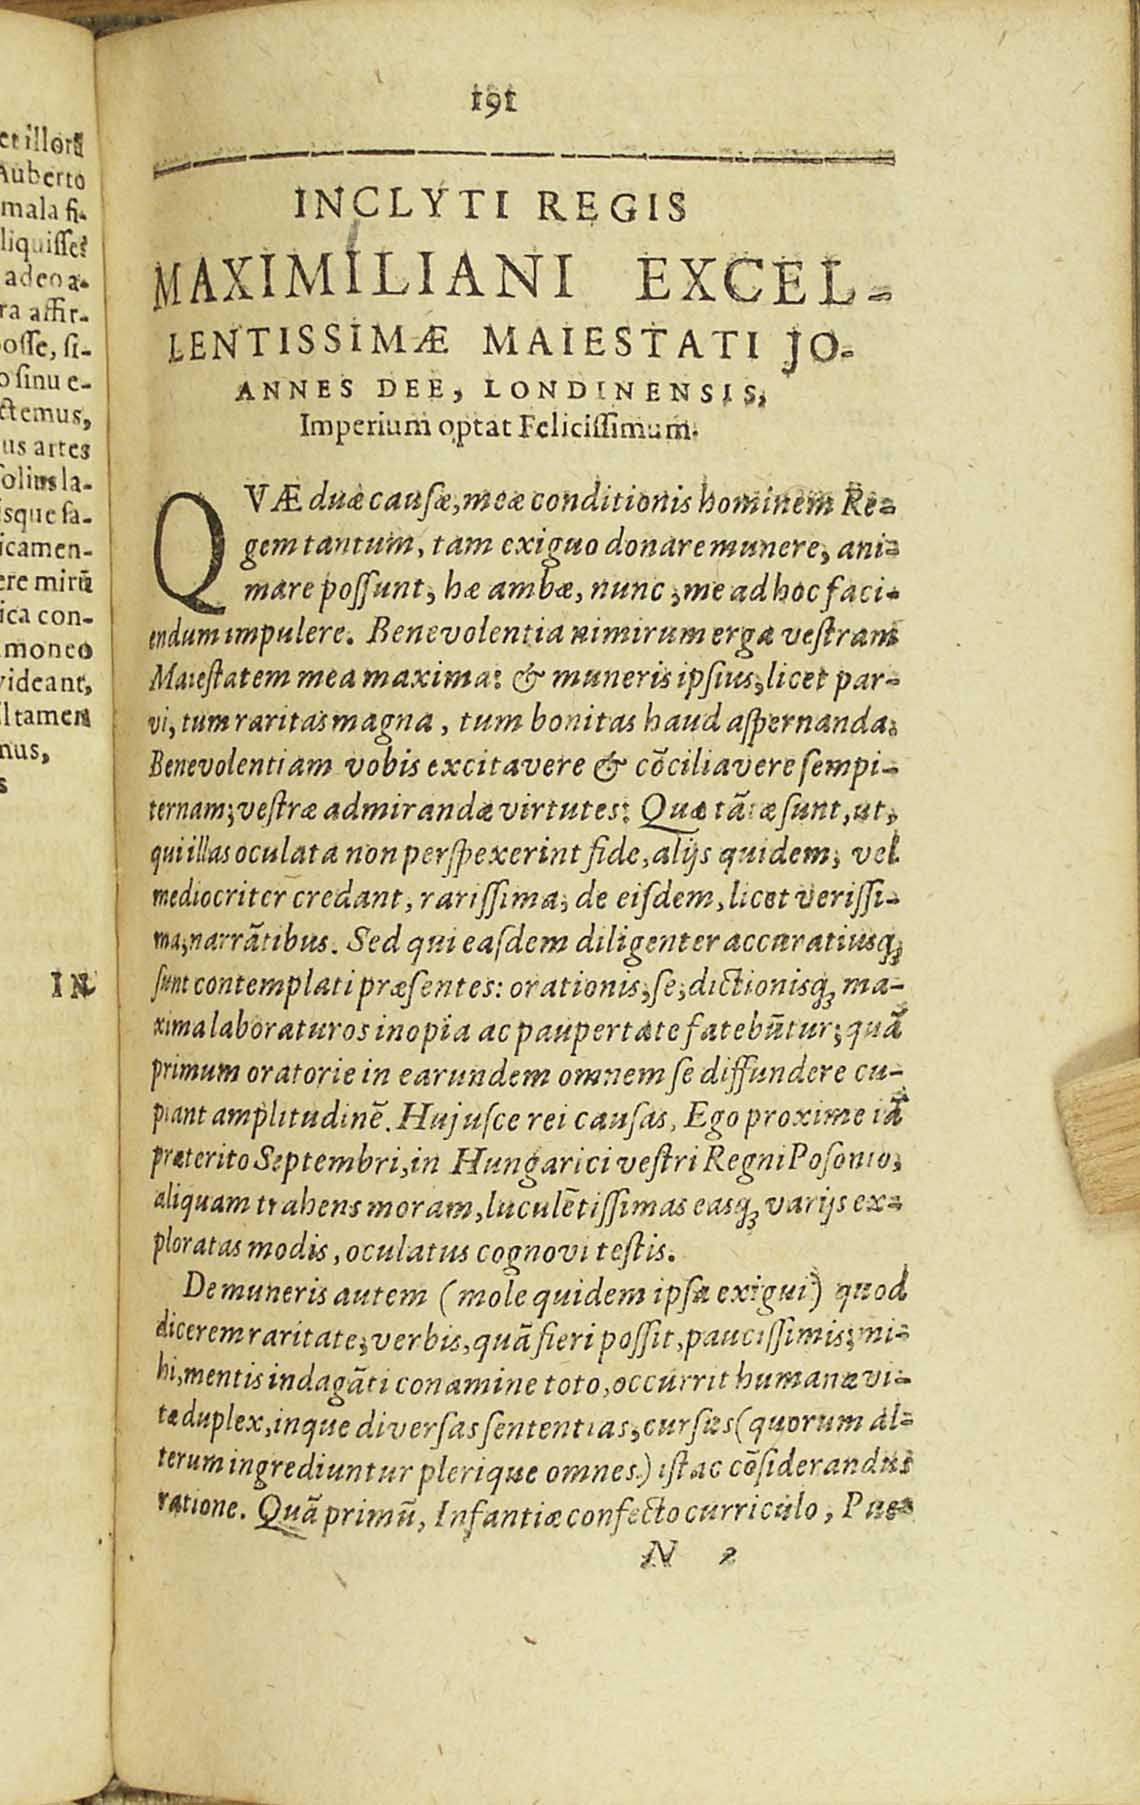 et illorū
Auberto
mala fi-
liquisse?
adeo a-
ra affir-
posse, si-
o sinu e-
ctemus,
us artes
solius la-
isque fa-
icamen-
ere mirū
ica con-
moneo
videant,
ll tamen
mus,
s
IN
191
INCLYTI REGIS
MAXIMILIANI EXCEL-
LENTISSIMÆ MAIESTATI JO-
ANNES DEE, LONDINENSIS,
Imperium optat Felicissimum.
QVÆ duæ causæ, meæ conditionis hominem Re-
gem tantum, tam exiguo donare munere, ani-
mare possunt, hæ ambæ, nunc, me ad hoc faci-
endum impulere. Benevolentia nimirum erga vestram
Maiestatem mea maxima: & muneris ipsius, licet par-
vi, tum raritas magna, tum bonitas haud aspernanda.
Benevolentiam vobis excitavere & cōciliavere sempi-
ternam; vestræ admirandæ virtutes: Quæ tātæ sunt, ut,
qui illas oculata non perspexerint fide, alijs quidem, vel
mediocriter credant, rarissima, de eisdem, licet verissi-
ma, narrātibus. Sed qui easdem diligenter accuratiusq;
sunt contemplati præsentes: orationis, se, dictionisq; ma-
xima laboraturos inopia ac paupertate fatebūtur; quā
primum oratorie in earundem omnem se diffundere cu-
piant amplitudinē. Hujusce rei causas, Ego proxime iā
præterito Septembri, in Hungarici vestri Regni Posonio,
aliquam trahens moram, luculētissimas easq; varijs ex-
ploratas modis, oculatus cognovi testis.
De muneris autem (mole quidem ipsa exigui) quod
dicerem raritate; verbis, quā fieri possit, paucissimis; mi-
hi, mentis indagāti conamine toto, occurrit humanæ vi-
tæ duplex, inque diversas sententias, cursus (quorum al-
terum ingrediuntur plerique omnes.) istac cōsiderandus
ratione. Quā primū, Infantiæ confecto curriculo, Pue-
N 2